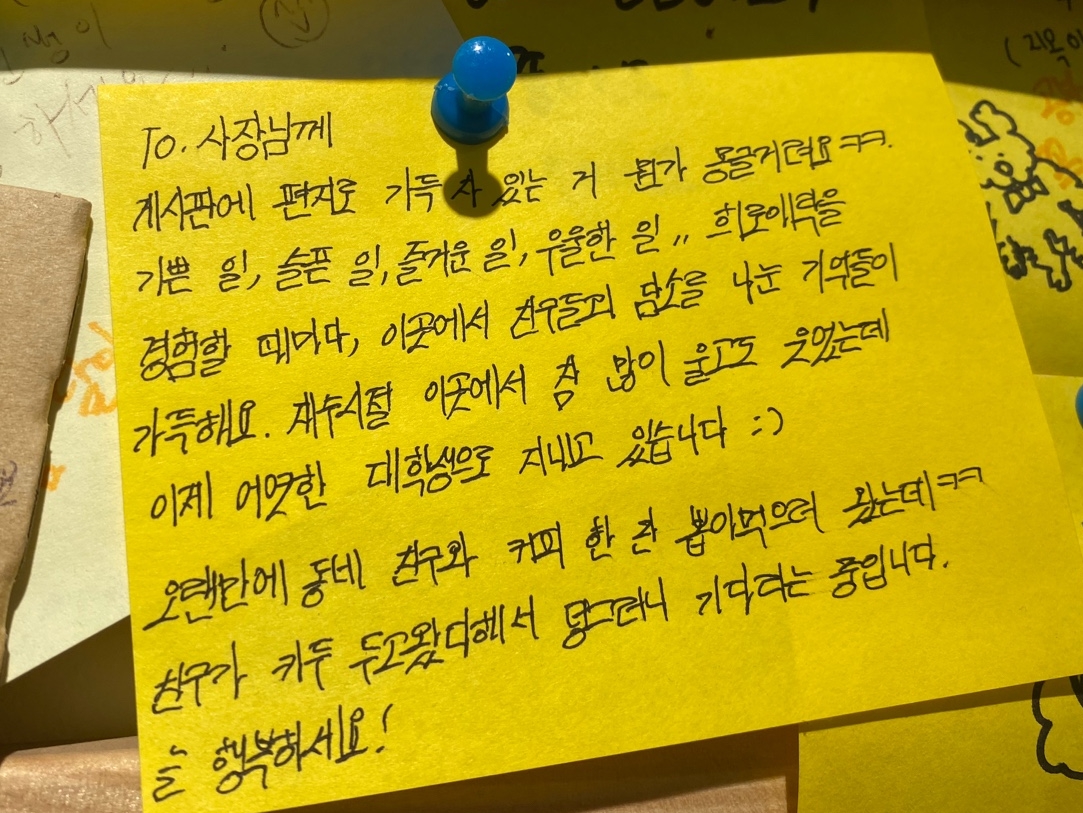 To. 사장님께
게시판에 편지로 가득 차 있는 거 뭔가 몽글거려요ㅋㅋ.
기쁜 일, 슬픈 일, 즐거운 일, 우울한 일,, 희로애락을
경험할 때마다, 이곳에서 친구들과 담소를 나눈 기억들이
가득해요. 재수시절 이곳에서 참 많이 울고도 웃었는데
이제 어엿한 대학생으로 지내고 있습니다 :)
오랜만에 동네 친구와 커피 한 잔 뽑아먹으러 왔는데ㅋㅋ
친구가 카두 두고왔다해서 덩그러니 기다리는 중입니다.
늘 행복하세요!